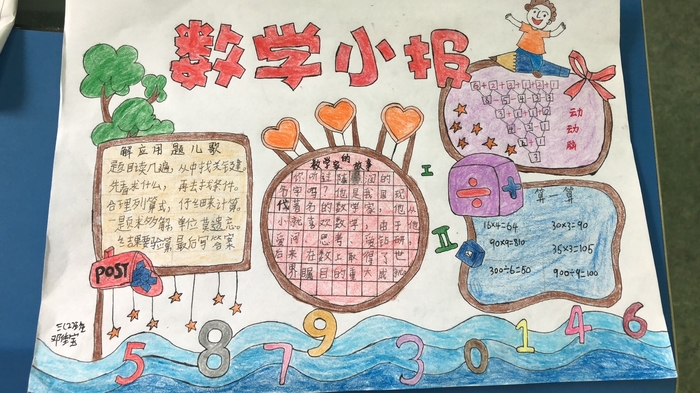 数学小报
解应用题儿歌
题目读几遍,从中找关键
先看求什么,再去找条件。
合理列算式,仔细来计算。
一题求够解,单位莫遗忘。
结果要验算最后写答案
POST
数学家的故事
你听过陈
名字吗?他是我国现
代著名的数学家,他从
小就喜欢数学,由于他
爱问,思考,爱钻研,
后来在数上取得了世
界瞩目的重大成就
I
II
动动脑
算一算
16×4=64
30×3=90
90×9=810
35×3=105
300÷6=50
900÷9=100
5
8
7
9
3
0
1
4
6